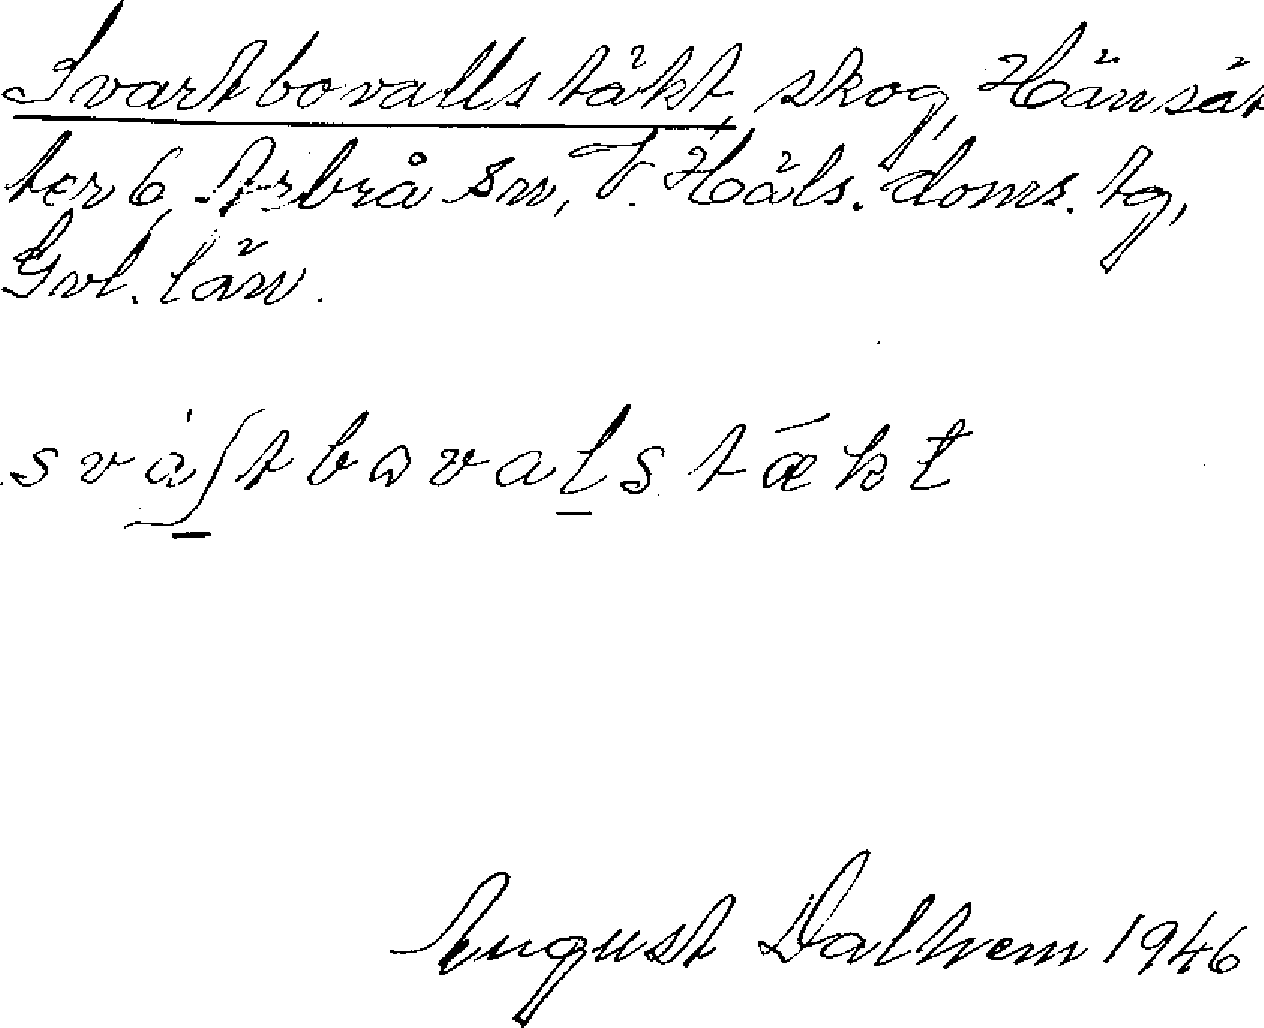 Svartbovallstäkt, skog, Hänsät
ter 6, Arbrå sn, V. Häls. doms. tg,
Gvl. län.
svaʃtbovalstækt
August Dalhem 1946